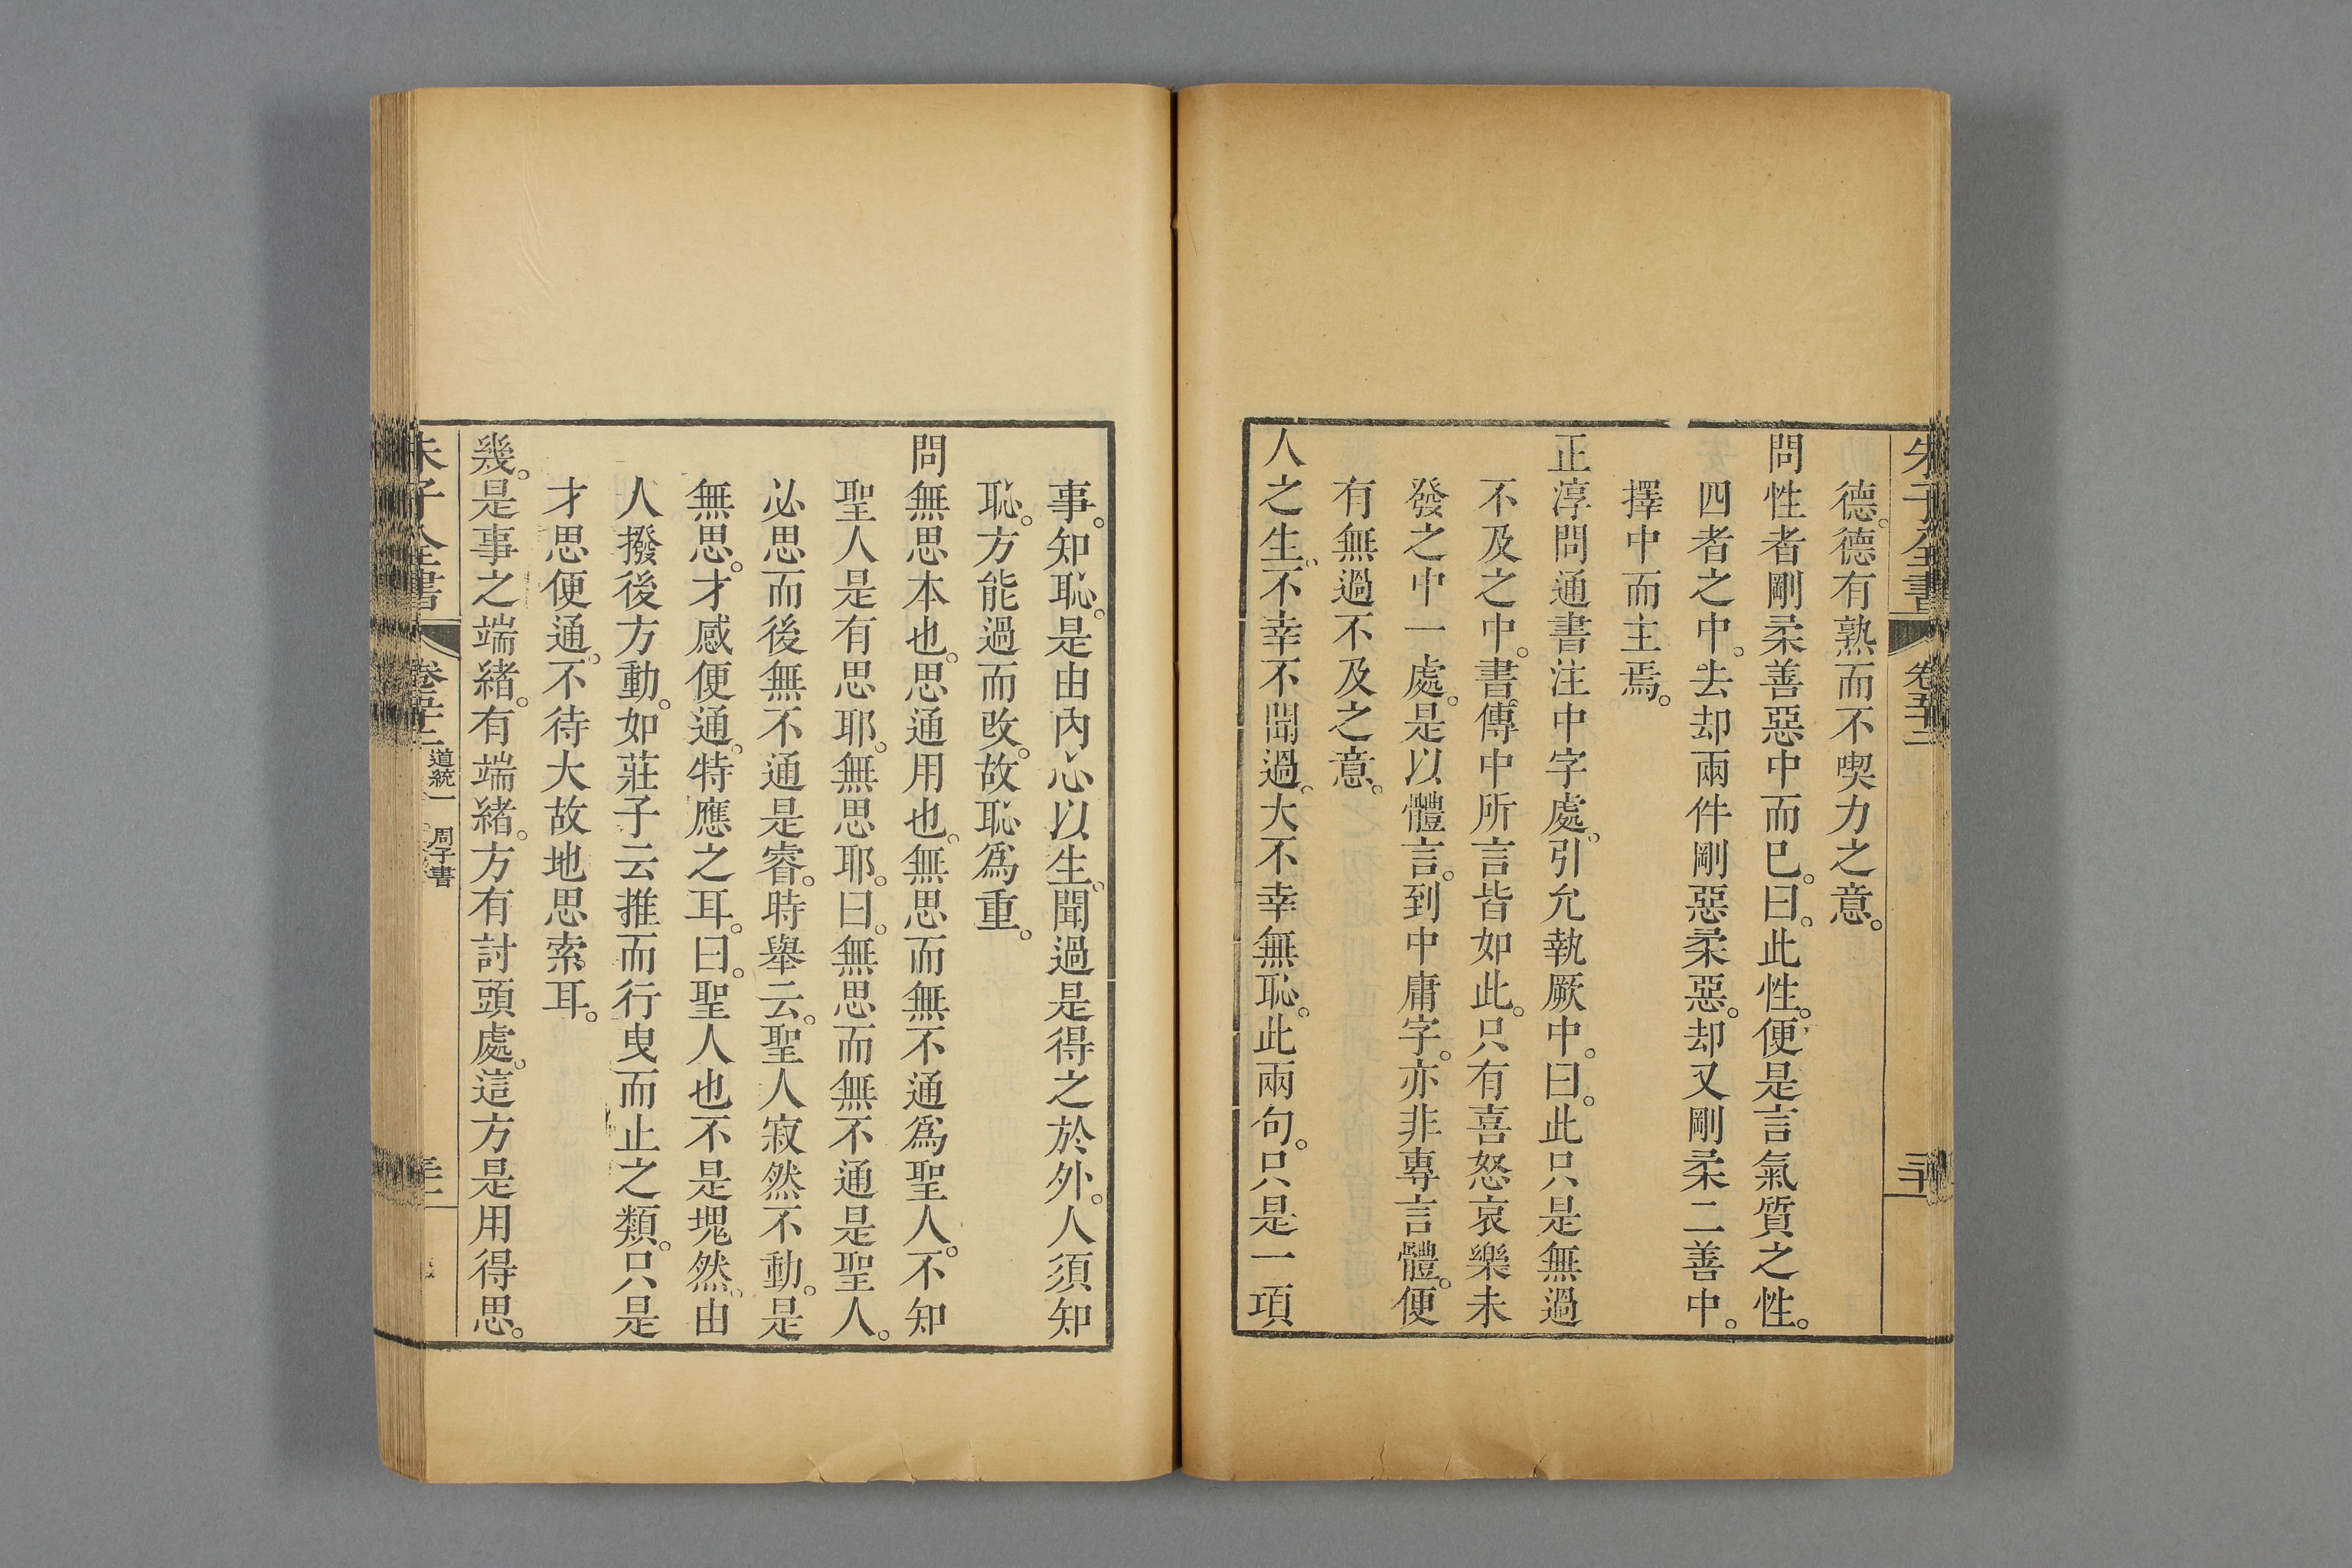 朱子全書 卷五十二 三十
德。德有熟而不喫力之意。
問性者剛柔善惡中而已。曰。此性。便是言氣質之性。
四者之中。去却兩件剛惡柔惡。却又剛柔二善中。
擇中而主焉。
正淳問通書注中字處。引允執厥中。曰。此只是無過
不及之中。書傳中所言皆如此。只有喜怒哀樂未
發之中一處。是以體言。到中庸字。亦非專言體。便
有無過不及之意。
人之生。不幸不聞過。大不幸無恥。此兩句。只是一項
事。知恥。是由內心以生。聞過是得之於外。人須知
恥。方能過而改。故恥爲重。
問無思本也。思通用也。無思而無不通爲聖人。不知
聖人是有思耶。無思耶。曰。無思而無不通是聖人。
必思而後無不通是睿。時舉云。聖人寂然不動。是
無思。才感便通。特應之耳。曰。聖人也不是塊然。由
人撥後方動。如莊子云推而行曳而止之類。只是
才思便通。不待大故地思索耳。
幾。是事之端緒。有端緒。方有討頭處。這方是用得思。
朱子全書 卷五十二 道統一 周子書